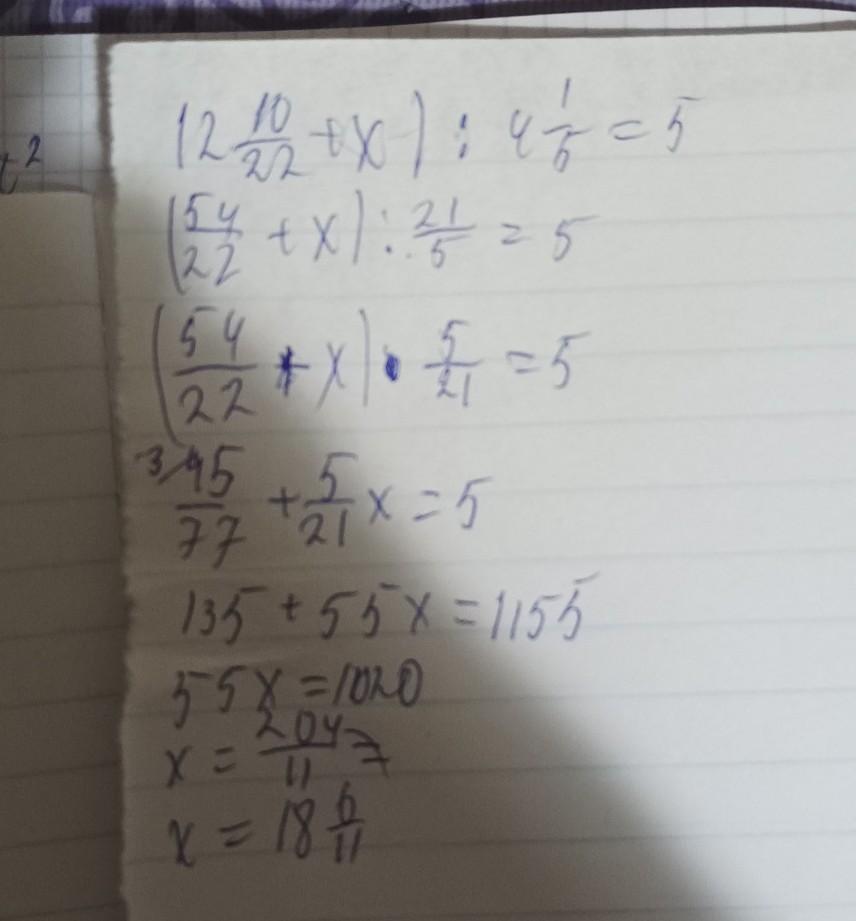 t²
(2 10/22 + x) : 4 1/5 = 5
(54/22 + x) : 21/5 = 5
(54/22 + x) · 5/21 = 5
³⁄ 45/77 + 5/21 x = 5
135 + 55x = 1155
55x = 1020
x = 204/11 =
x = 18 6/11